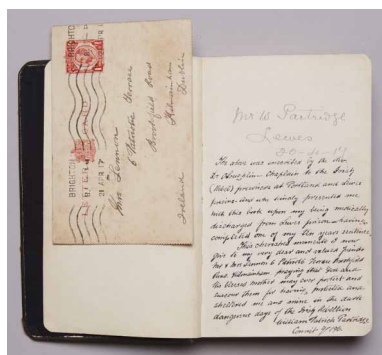 BRIGHTON
LETTER CARD
BRIGHTON
21 APR 17
Mrs Lemmon
6 Patriotic Terrace
Brookfield Road
Kilmainham
Dublin
Ireland
Mr W. Partridge
Lewes
20-4-17
The above was inscribed by the Rev
Dr Chaplain to the Irish
prisoners at Portland and Lewes
prisons and who kindly presented me
with this book upon my being medically
discharged from Lewes prison having
completed one of my ten years sentence.
This cherished memento I now
give to my very dear and valued friends
Mr & Mrs Lemmon 6 Patriotic Terrace Brookfield
Road Kilmainham praying that God and
His blessed mother may ever protect and
succour them for having protected and
sheltered me and mine in the dark
dangerous days of the Irish Rebellion
William Patrick Partridge
Convict